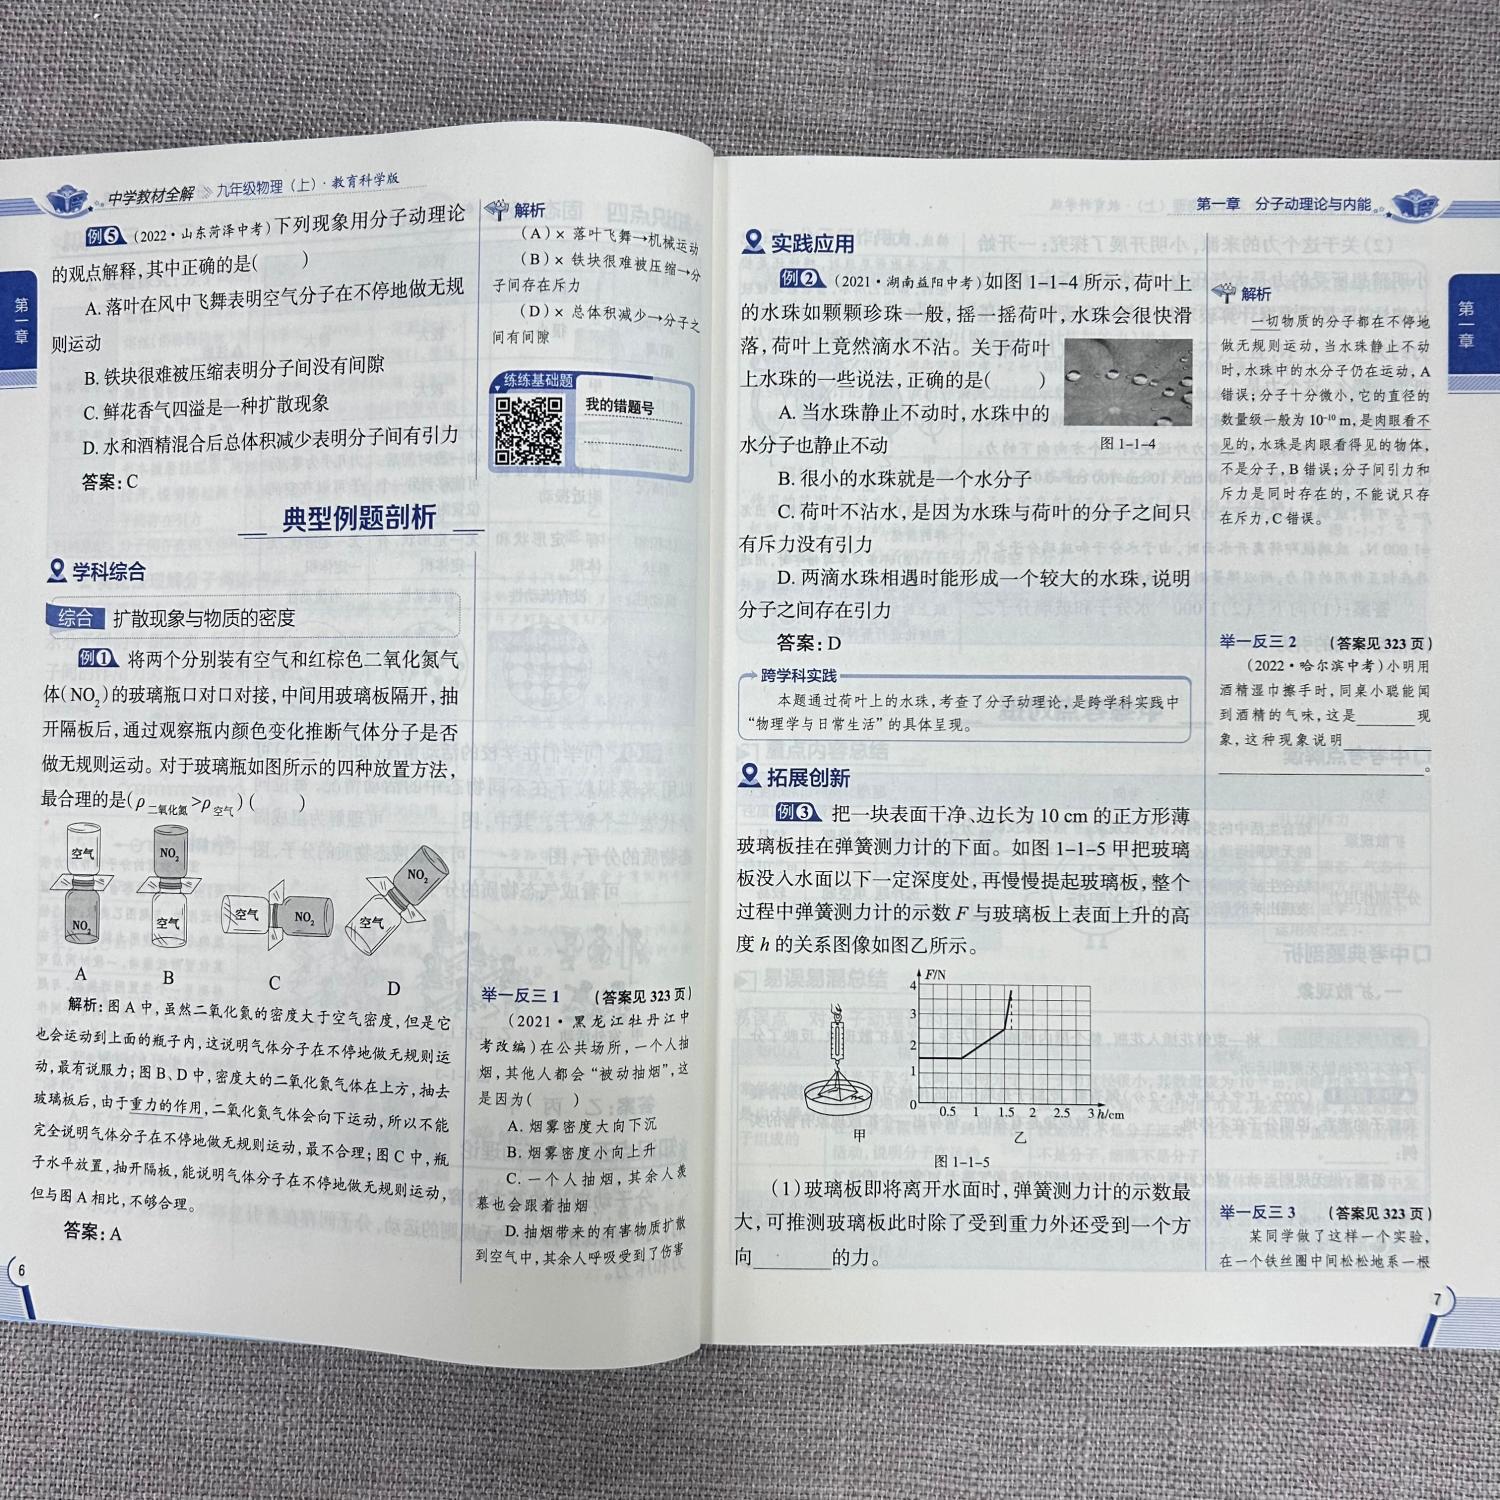 中学教材全解 九年级物理（上）·教育科学版
第一章
例5 (2022·山东菏泽中考)下列现象用分子动理论
的观点解释,其中正确的是( )
A. 落叶在风中飞舞表明空气分子在不停地做无规
则运动
B. 铁块很难被压缩表明分子间没有间隙
C. 鲜花香气四溢是一种扩散现象
D. 水和酒精混合后总体积减少表明分子间有引力
答案:C
解析
(A)× 落叶飞舞→机械运动
(B)× 铁块很难被压缩→分
子间存在斥力
(D)× 总体积减少→分子之
间有间隙
练练基础题
我的错题号
典型例题剖析
学科综合
综合 扩散现象与物质的密度
例1 将两个分别装有空气和红棕色二氧化氮气
体(NO₂)的玻璃瓶口对口对接,中间用玻璃板隔开,抽
开隔板后,通过观察瓶内颜色变化推断气体分子是否
做无规则运动。对于玻璃瓶如图所示的四种放置方法,
最合理的是(ρ二氧化氮>ρ空气)( )
空气 NO₂
NO₂ 空气
空气 NO₂
NO₂ 空气
A B C D
解析:图A中,虽然二氧化氮的密度大于空气密度,但是它
也会运动到上面的瓶子内,这说明气体分子在不停地做无规则运
动,最有说服力;图B、D中,密度大的二氧化氮气体在上方,抽去
玻璃板后,由于重力的作用,二氧化氮气体会向下运动,所以不能
完全说明气体分子在不停地做无规则运动,最不合理;图C中,瓶
子水平放置,抽开隔板,能说明气体分子在不停地做无规则运动,
但与图A相比,不够合理。
答案:A
举一反三1 (答案见323页)
(2021·黑龙江牡丹江中
考改编)在公共场所,一个人抽
烟,其他人都会“被动抽烟”,这
是因为( )
A. 烟雾密度大向下沉
B. 烟雾密度小向上升
C. 一个人抽烟,其余人羡
慕也会跟着抽烟
D. 抽烟带来的有害物质扩散
到空气中,其余人呼吸受到了伤害
6
第一章 分子动理论与内能
第一章
实践应用
例2 (2021·湖南益阳中考)如图1-1-4所示,荷叶上
的水珠如颗颗珍珠一般,摇一摇荷叶,水珠会很快滑
落,荷叶上竟然滴水不沾。关于荷叶
上水珠的一些说法,正确的是( )
A. 当水珠静止不动时,水珠中的
水分子也静止不动
图1-1-4
B. 很小的水珠就是一个水分子
C. 荷叶不沾水,是因为水珠与荷叶的分子之间只
有斥力没有引力
D. 两滴水珠相遇时能形成一个较大的水珠,说明
分子之间存在引力
答案:D
跨学科实践
本题通过荷叶上的水珠,考查了分子动理论,是跨学科实践中
“物理学与日常生活”的具体呈现。
拓展创新
例3 把一块表面干净、边长为10 cm的正方形薄
玻璃板挂在弹簧测力计的下面。如图1-1-5甲把玻璃
板没入水面以下一定深度处,再慢慢提起玻璃板,整个
过程中弹簧测力计的示数F与玻璃板上表面上升的高
度h的关系图像如图乙所示。
甲
F/N
4
3
2
1
0 0.5 1 1.5 2 2.5 3 h/cm
乙
图1-1-5
(1)玻璃板即将离开水面时,弹簧测力计的示数最
大,可推测玻璃板此时除了受到重力外还受到一个方
向______的力。
解析
一切物质的分子都在不停地
做无规则运动,当水珠静止不动
时,水珠中的水分子仍在运动,A
错误;分子十分微小,它的直径的
数量级一般为10⁻¹⁰ m,是肉眼看不
见的,水珠是肉眼看得见的物体,
不是分子,B错误;分子间引力和
斥力是同时存在的,不能说只存
在斥力,C错误。
举一反三2 (答案见323页)
(2022·哈尔滨中考)小明用
酒精湿巾擦手时,同桌小聪能闻
到酒精的气味,这是______现
象,这种现象说明________
________________。
举一反三3 (答案见323页)
某同学做了这样一个实验,
在一个铁丝圈中间松松地系一根
7